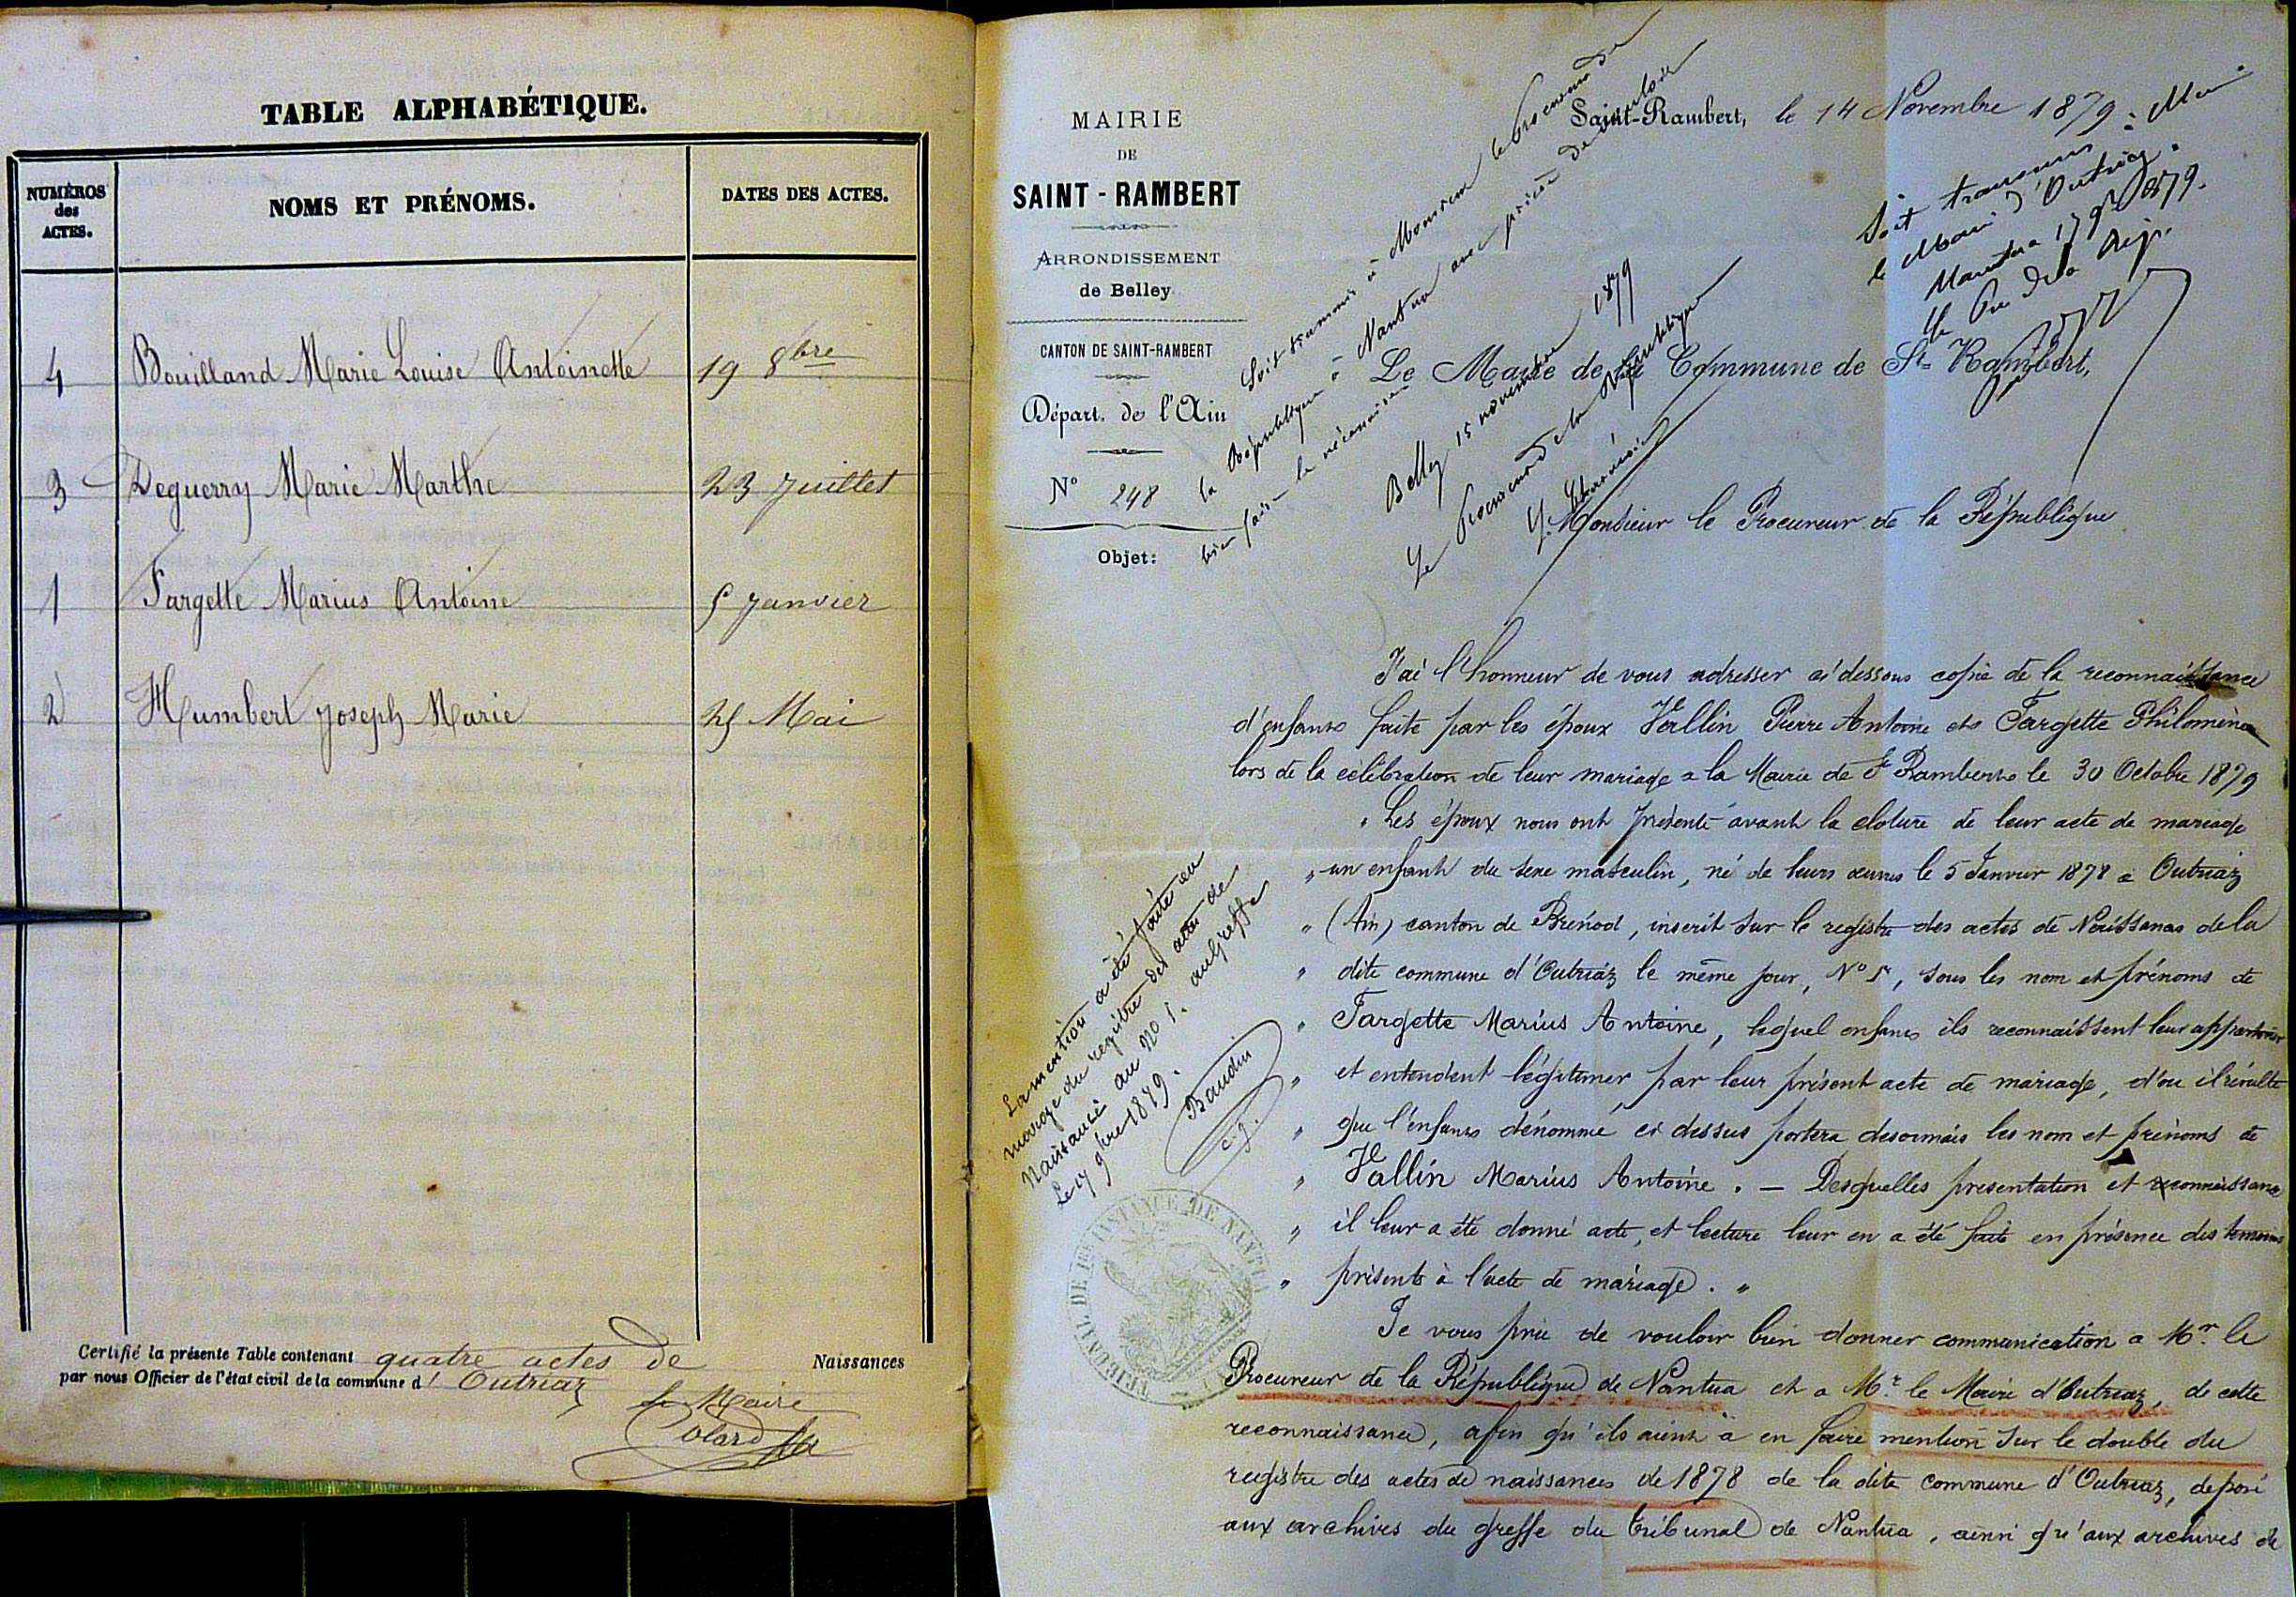 TABLE ALPHABÉTIQUE.
NUMÉROS
des
ACTES.
NOMS ET PRÉNOMS.
DATES DES ACTES.
4 Bouilland Marie Louise Antoinette 19 8bre
3 Deguerry Marie Marthe 23 Juillet
1 Fargette Marius Antoine 5 Janvier
2 Humbert Joseph Marie 25 Mai
Certifié la présente Table contenant quatre actes de Naissances
par nous Officier de l'état civil de la commune d' Outriaz
le Maire
Colard
MAIRIE
DE
SAINT-RAMBERT
ARRONDISSEMENT
de Belley
CANTON DE SAINT-RAMBERT
Départ. de l'Ain
N° 248
Objet:
Saint-Rambert, le 14 Novembre 1879
Soit transmis à Monsieur le Procureur de
la République à Nantua avec prière de vouloir
bien faire le nécessaire
Belley 15 novembre 1879
Le Procureur de la République
Soit transmis
le Maire d'Outriaz.
Nantua 17 9bre 1879.
Le Pr de la Rép.
Le Maire de la Commune de St Rambert,
Monsieur le Procureur de la République
J'ai l'honneur de vous adresser ci dessous copie de la reconnaissance
d'enfants faite par les époux Vallin Pierre Antoine et Fargette Philomène
lors de la célébration de leur mariage a la Mairie de St Rambert le 30 Octobre 1879
" Les époux nous ont présenté avant la cloture de leur acte de mariage
" un enfant du sexe masculin, né de leurs œuvres le 5 Janvier 1878 a Outriaz
" (Ain) canton de Brénod, inscrit sur le registre des actes de Naissances de la
" dite commune d'Outriaz le même jour, N° 1er, sous les nom et prénoms de
" Fargette Marius Antoine, lequel enfant ils reconnaissent leur appartenir
" et entendent légitimer par leur présent acte de mariage, d'ou il résulte
" que l'enfant dénommé ci dessus portera desormais les nom et prénoms de
" Vallin Marius Antoine. — Desquelles presentation et reconnaissance
" il leur a été donné acte, et lecture leur en a été faite en présence des temoins
" présents à l'acte de mariage. "
Je vous prie de vouloir bien donner communication a Mr le
Procureur de la République de Nantua et a Mr le Maire d'Outriaz, de cette
reconnaissance, afin qu'ils aient à en faire mention sur le double du
registre des actes de naissances de 1878 de la dite commune d'Outriaz, déposé
aux archives du greffe du tribunal de Nantua, ainsi qu'aux archives de
La mention a été faite en
marge du registre des actes de
Naissance au no 1. au greffe
Le 17 9bre 1879.
Baudin
c.g.
TRIBUNAL DE 1ère INSTANCE DE NANTUA